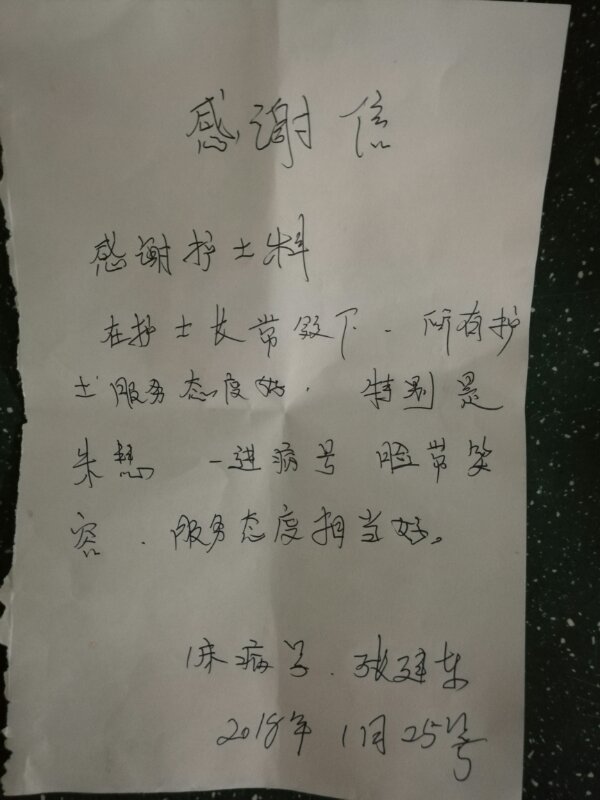 感谢信
感谢护士料
在护士长常毅下.所有护
士服务态度好.特别是
朱慧 一进病号 脸带笑
容.服务态度相当好。
1床病号.张建东
2018年1月25号